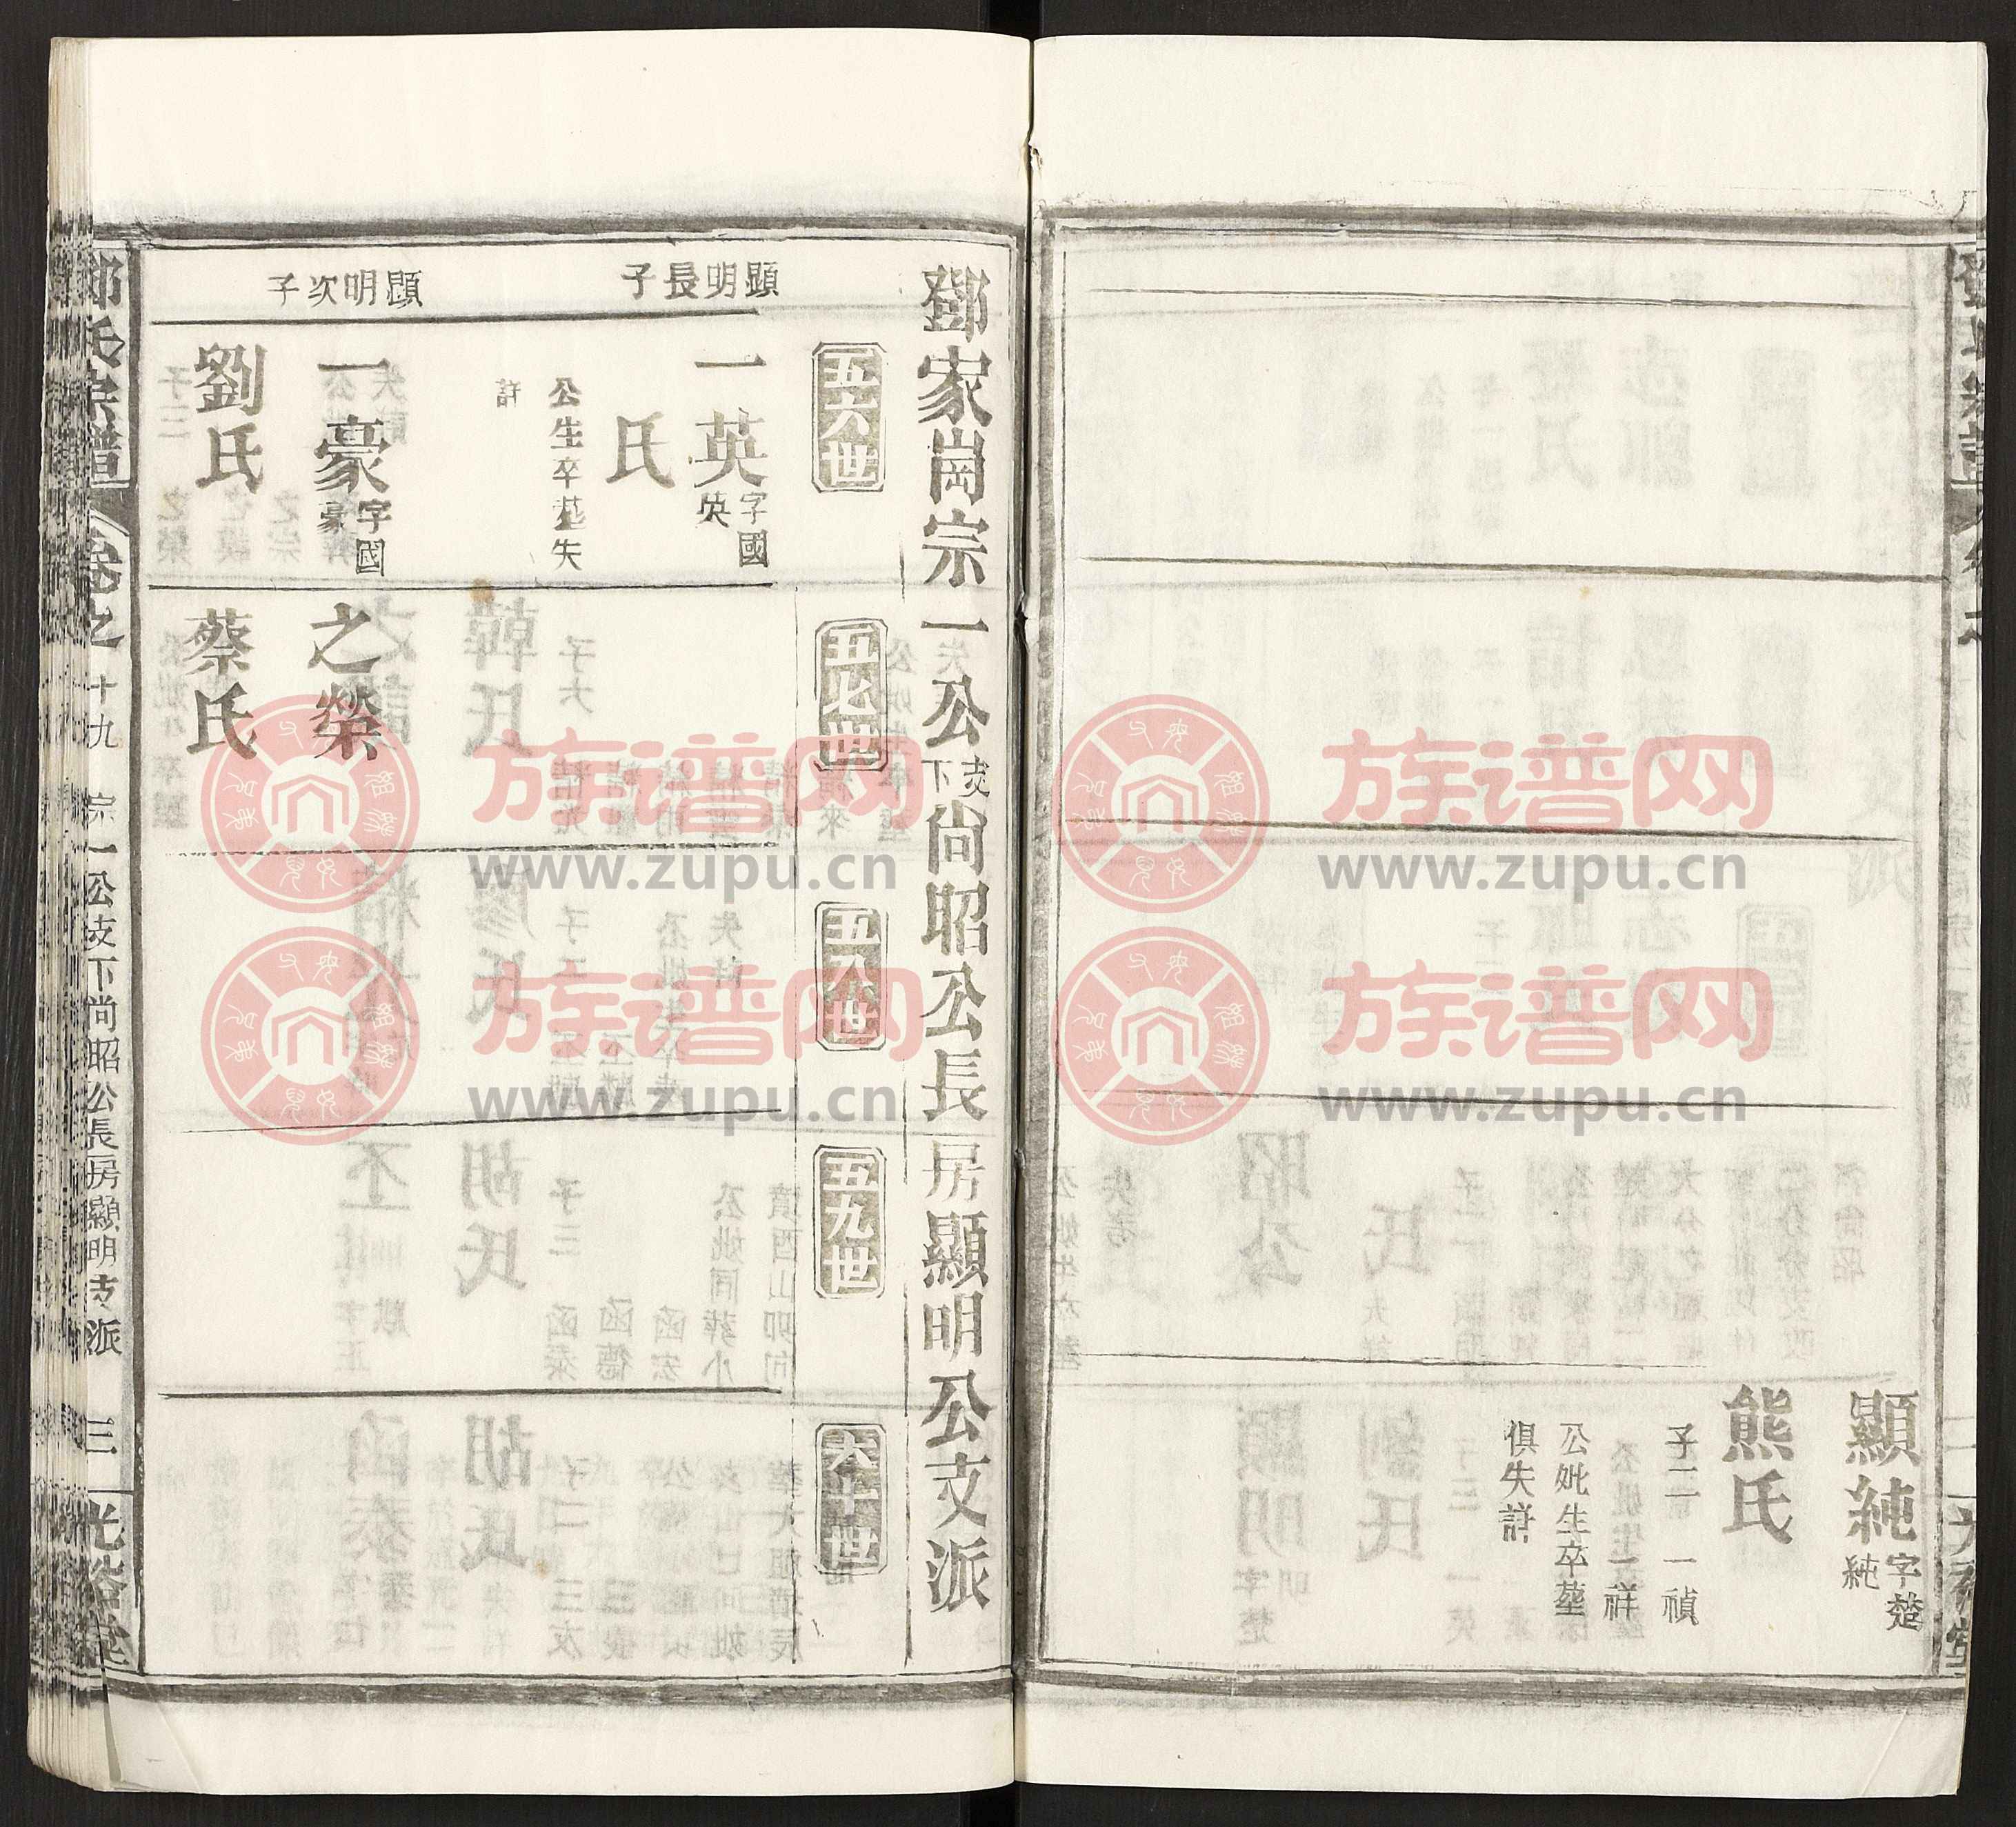 顯純字楚純
熊氏
子二 一禎
一祥
公妣生卒塟
俱失詳
鄧家崗宗一公支下尙昭公長房顯明公支派
五六世
五七世
五八世
五九世
六十世
顯明長子
一英字國英
氏
公生卒塟失
詳
顯明次子
一豪字國豪
劉氏
之榮
蔡氏
鄧氏宗譜
卷之十九
宗一公支下尙昭公長房顯明支派
三
光裕堂
族谱网
www.zupu.cn
族谱网
www.zupu.cn
族谱网
www.zupu.cn
族谱网
www.zupu.cn